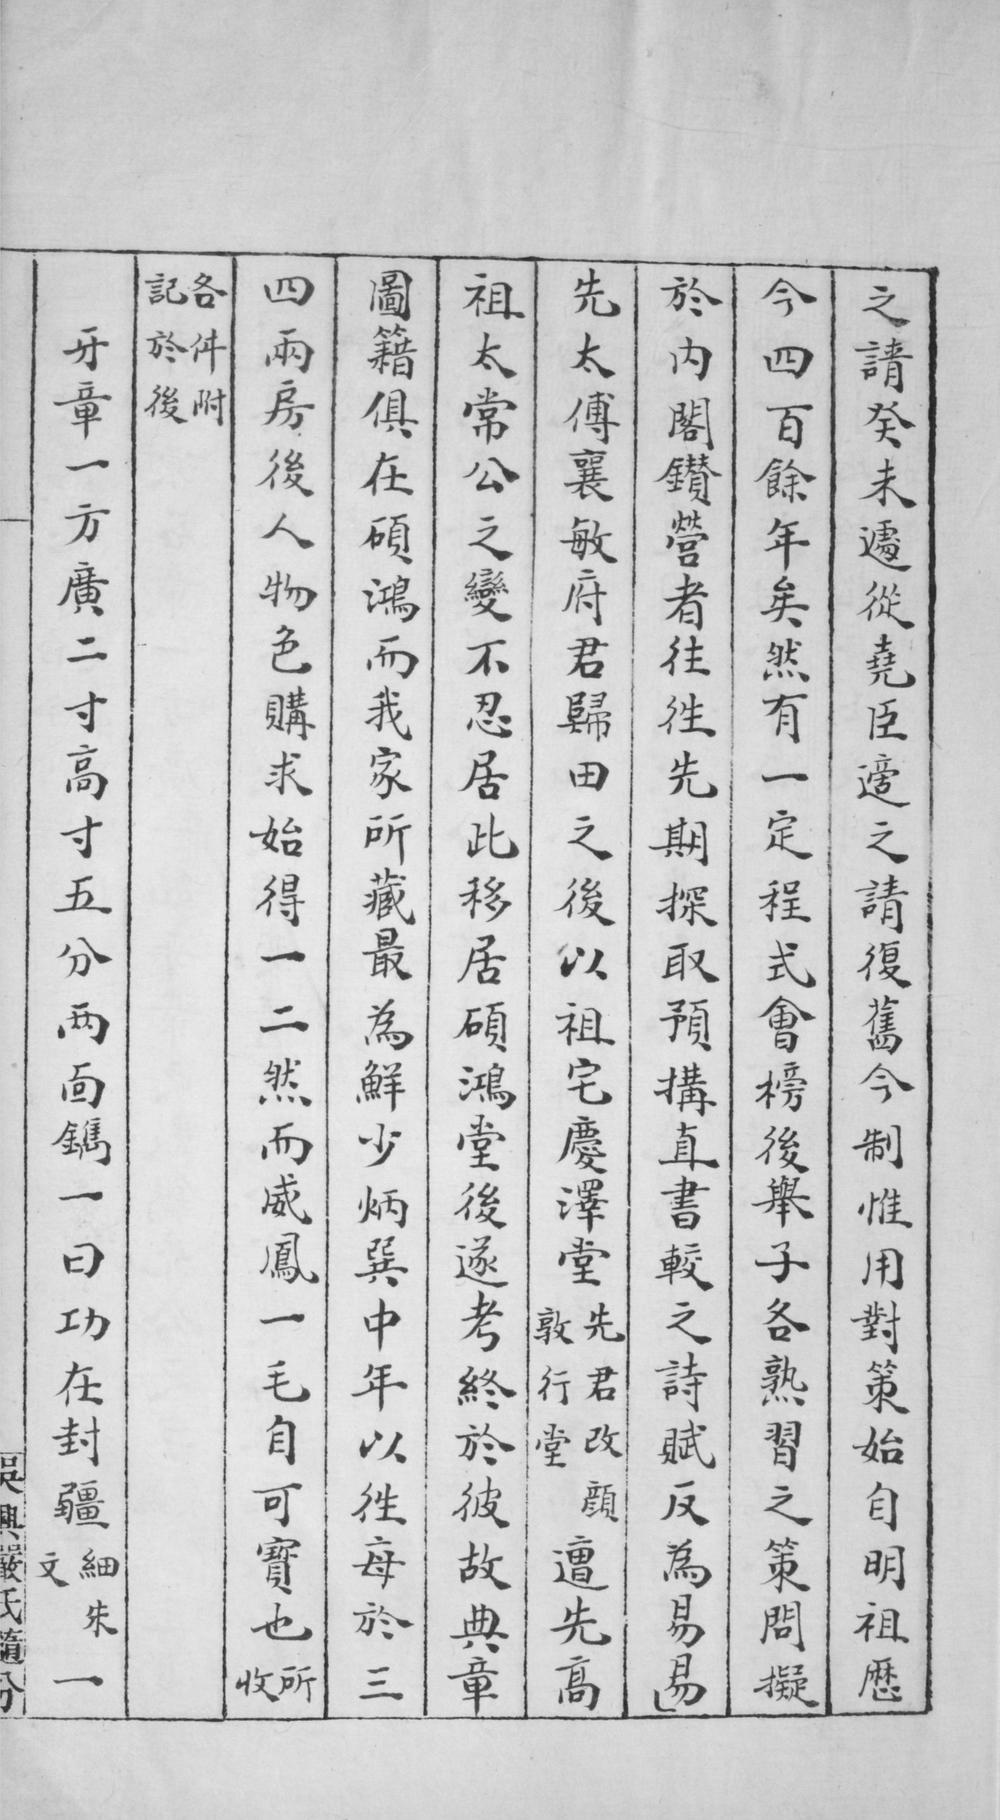 之請癸未遽從堯臣遊之請復舊今制惟用對策始自明祖歷
今四百餘年矣然有一定程式會榜後舉子各熟習之策問擬
於内閣鑽營者往往先期探取預搆直書較之詩賦反為易易
先太傅襄敏府君歸田之後以祖宅慶澤堂先君改顔敦行堂遭先高
祖太常公之變不忍居此移居碩鴻堂後遂考終於彼故典章
圖籍俱在碩鴻而我家所藏最為鮮少炳巽中年以徃每於三
四兩房後人物色購求始得一二然而威鳳一毛自可寶也所收
各件附記於後
牙章一方廣二寸高寸五分兩面鐫一曰功在封疆細朱文一
吳興嚴氏隨分